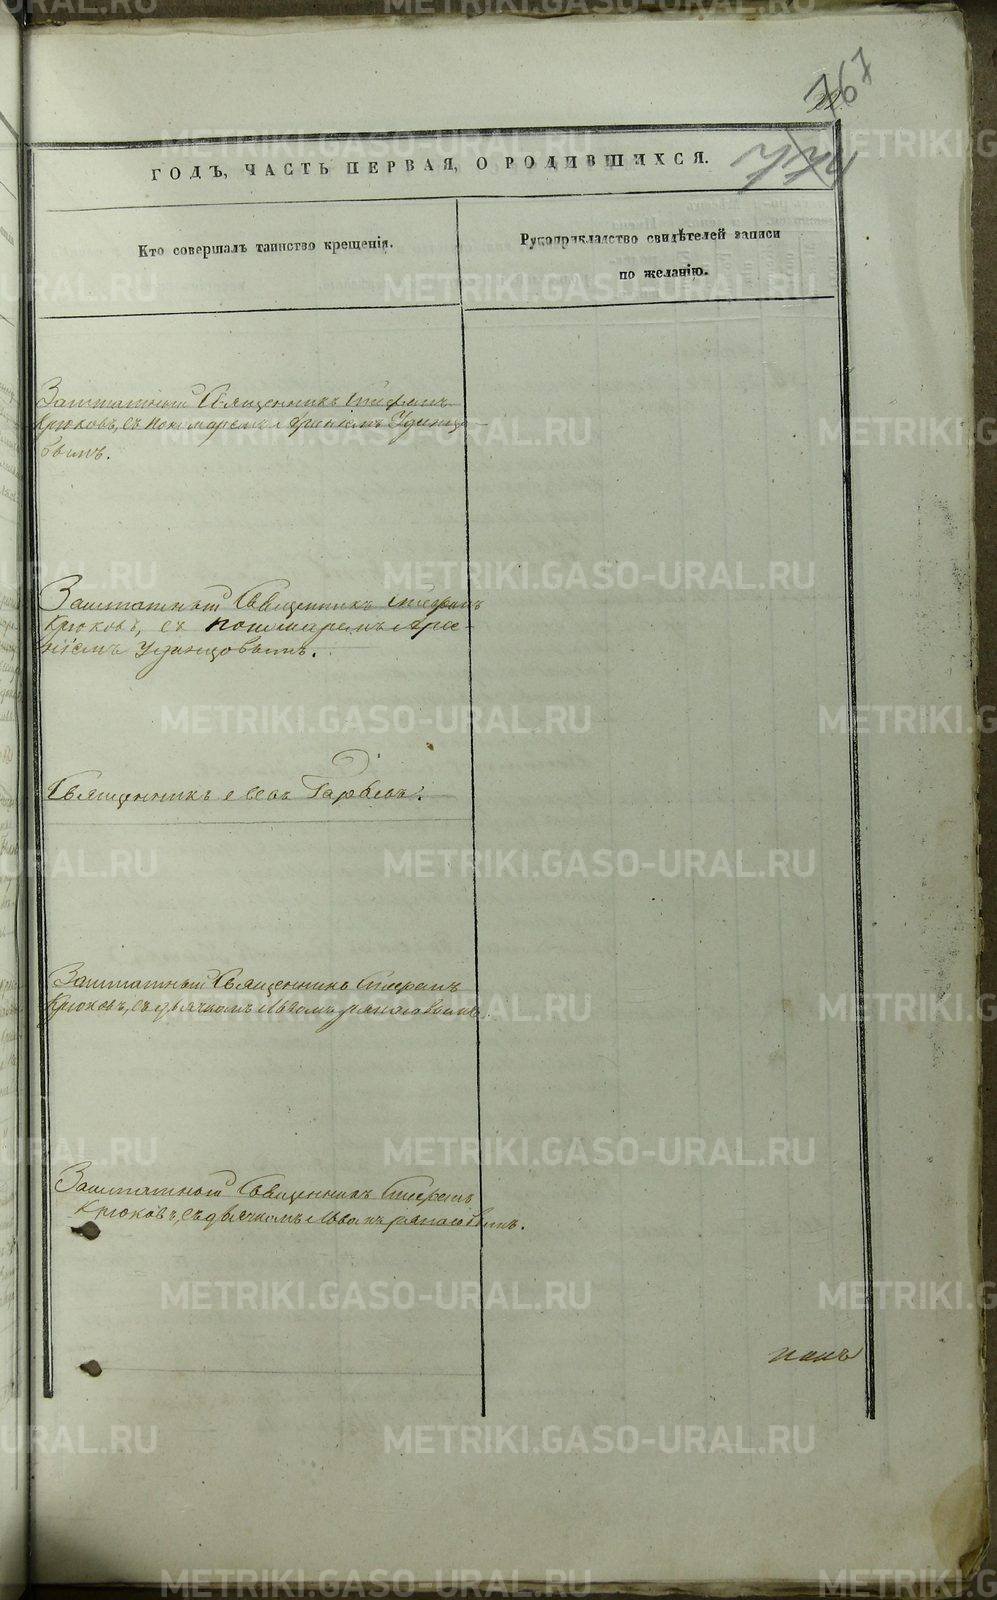 767
774
ГОДЪ, ЧАСТЬ ПЕРВАЯ, О РОДИВШИХСЯ.
Кто совершалъ таинство крещенія.
Рукоприкладство свидѣтелей записи
по желанію.
Заштатный Священникъ Стефанъ
Крюковъ, съ пономаремъ Арсніемъ Удинцо-
вымъ.
Заштатный Священникъ Стефанъ
Крюковъ, съ пономаремъ Арсе-
ніемъ Удинцовымъ.
Священникъ
Заштатный Священникъ Стефанъ
Крюковъ, съ дьячкомъ
Заштатный Священникъ Стефанъ
Крюковъ, съ дьячкомъ
METRIKI.GASO-URAL.RU